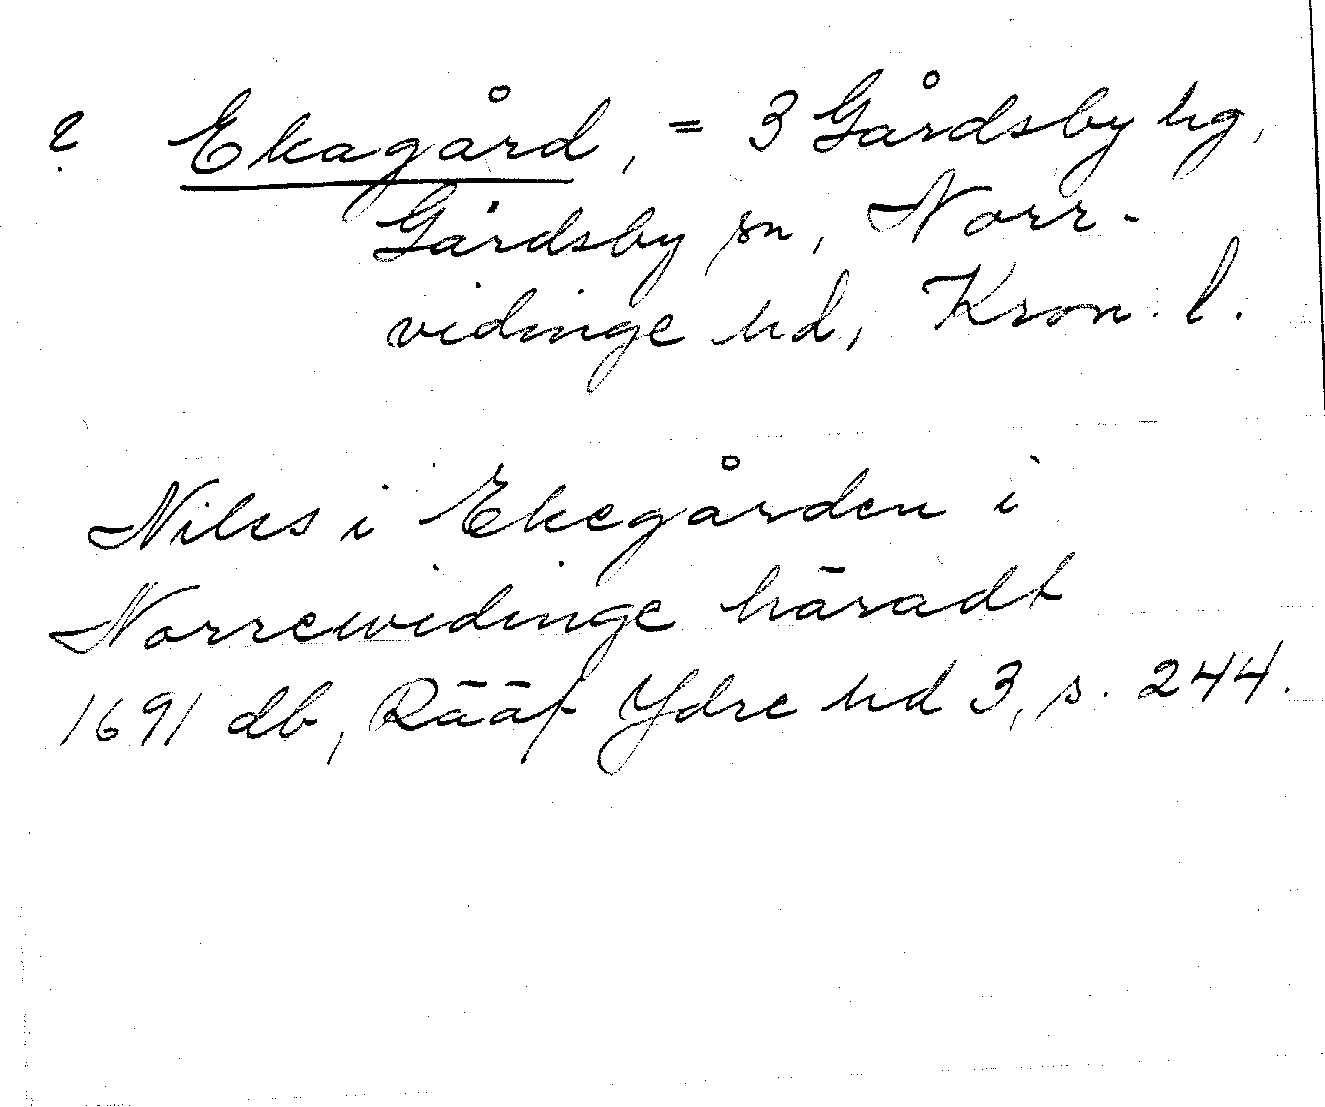 ? Ekagård, = 3 Gårdsby hg,
Gårdsby sn, Norr-
vidinge hd, Kron. l.
Nils i Ekegården i
Norrewidinge häradt
1691 db, Rääf Ydre hd 3, s. 244.